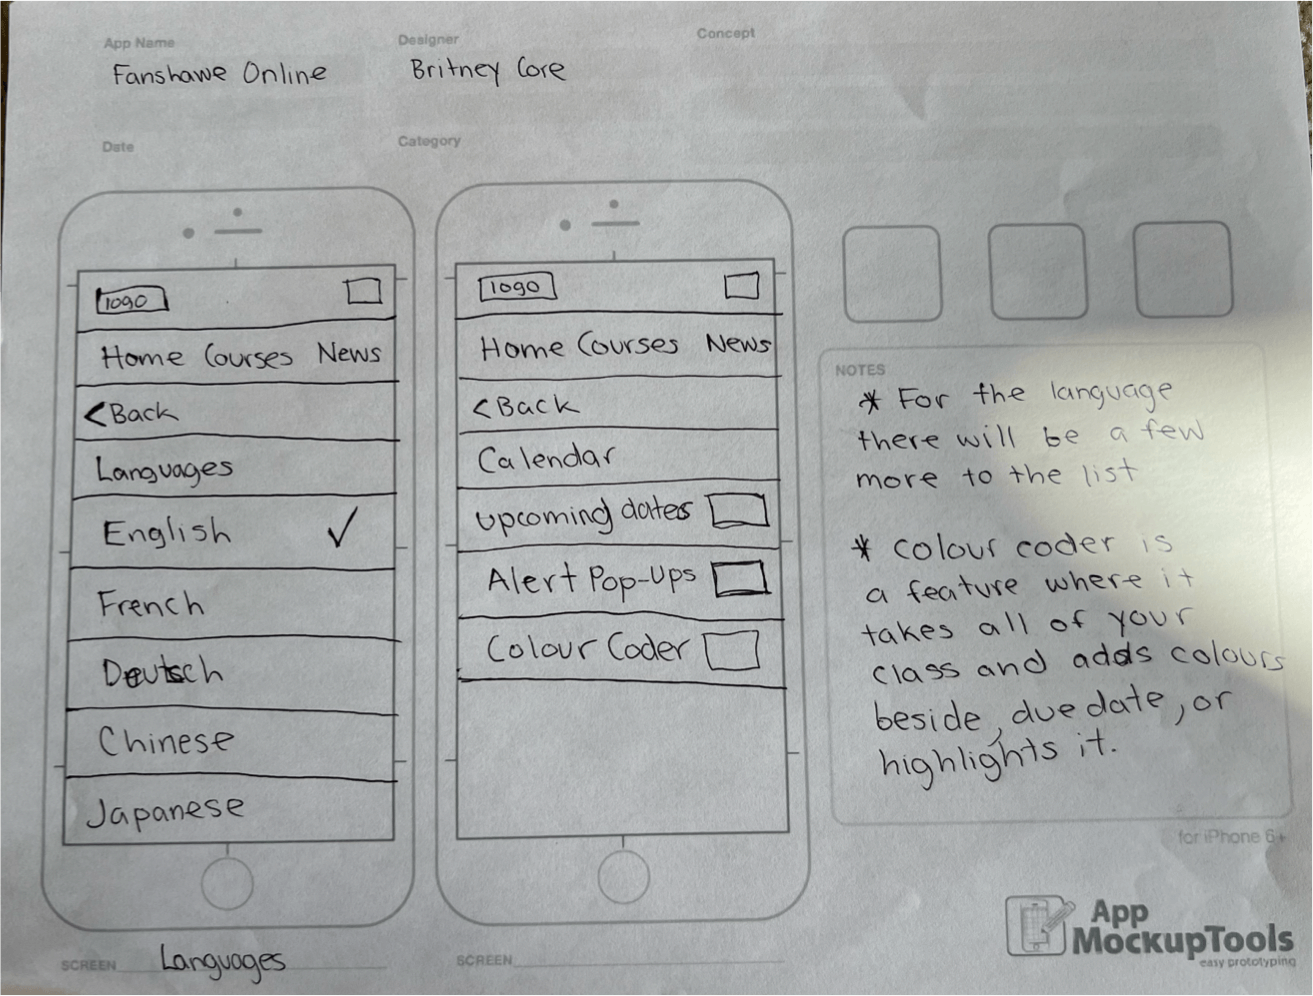 App Name
Fanshawe Online
Designer
Britney Core
Concept
Date
Category
logo
Home Courses News
<Back
Languages
English ✓
French
Deutsch
Chinese
Japanese
SCREEN Languages
logo
Home Courses News
<Back
Calendar
upcoming dates
Alert Pop-Ups
Colour Coder
SCREEN
NOTES
* For the language
there will be a few
more to the list
* colour coder is
a feature where it
takes all of your
class and adds colours
beside, due date, or
highlights it.
for iPhone 6+
App
MockupTools
easy prototyping